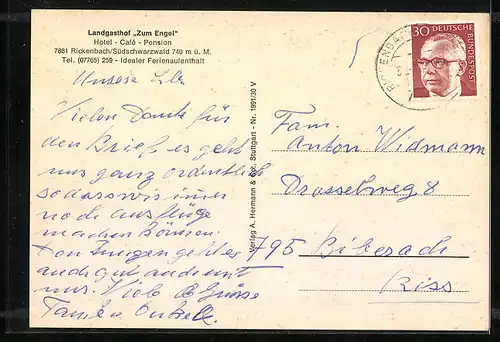 Landgasthof „Zum Engel"
Hotel - Café - Pension
7881 Rickenbach/Südschwarzwald 740 m ü. M.
Tel. (07765) 259 - Idealer Ferienaufenthalt
Unsere
Vielen Dank für
den Brief, es geht
uns ganz ordentlich
sodass wir immer
noch ausflüge
machen können.
den Jungen geht es
auch gut and
uns. Viele Grüsse
Tante u. Onkel
Verlag A. Hermann & Co., Stuttgart - Nr. 1991/30 V
30 DEUTSCHE BUNDESPOST
Fam.
Anton Widmann
Drosselweg 8
795 Biberach
Riss